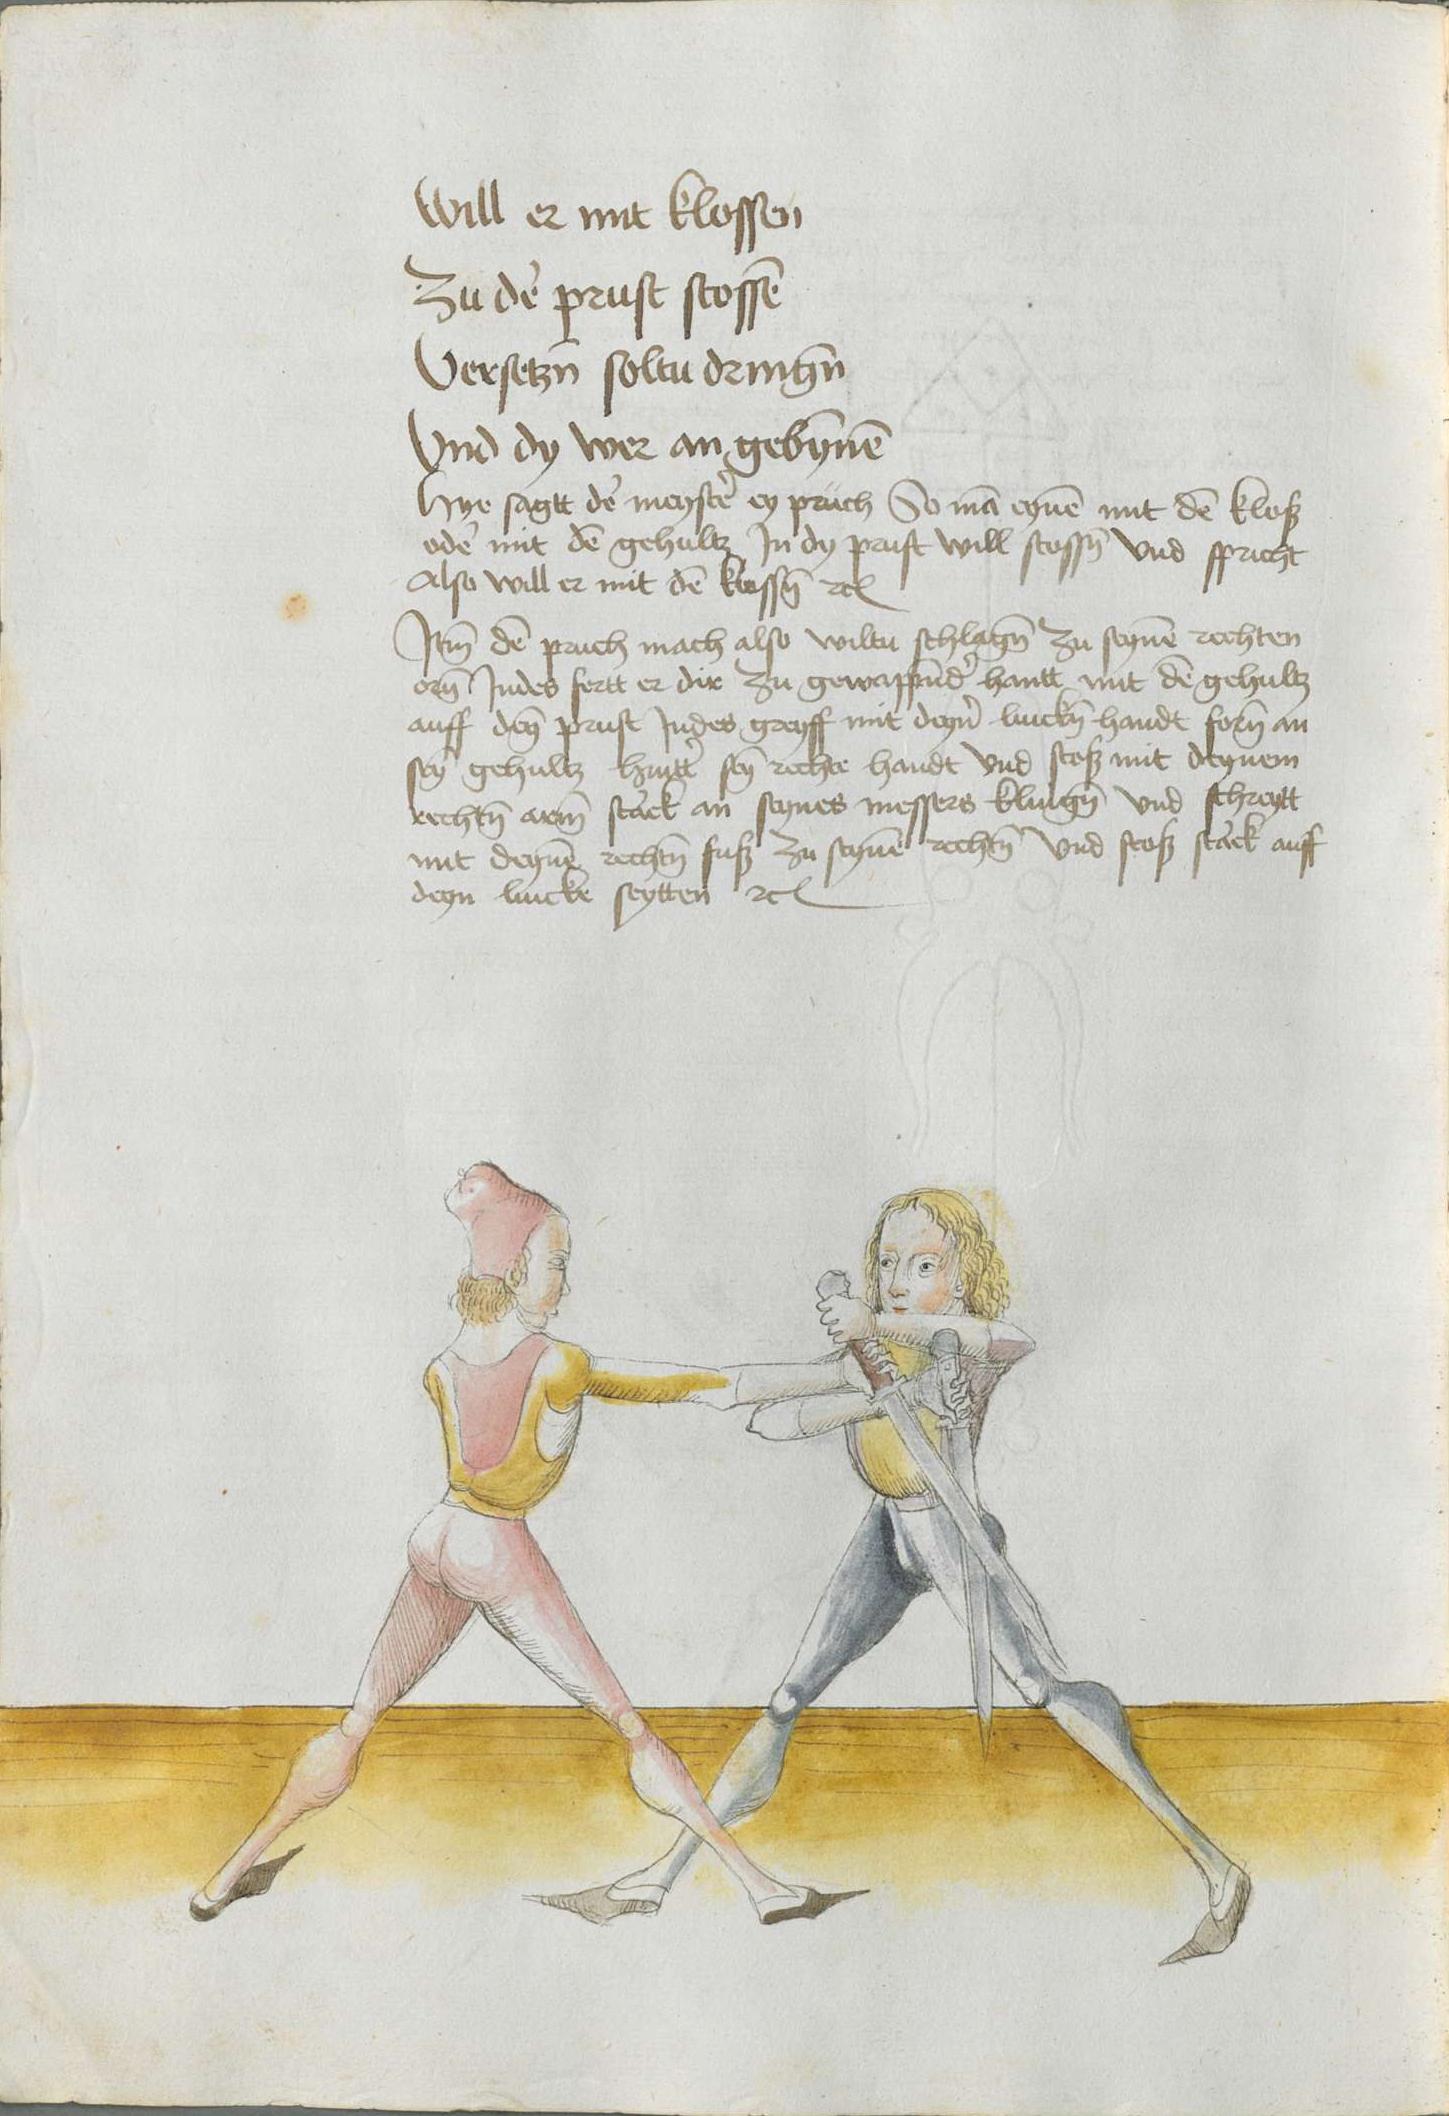 Will er mit klossen
Zu de᷑ prust stossē
Versetzn̄ soltu dringn̄
Vnd dy wer an gebȳnē
Hye sagtt de᷑ meyste᷑ ey prüch So mā eynē mit dē kloß
ode᷑ mit dē gehultz In dy prust will stossn̄ vnd spricht
Also will er mit dē klossn̄ ꝛc
Itm̄ dē pruch mach also wiltu schlagn̄ zu seynē rechten
orn̄ Indes fertt er dir zu gewappnd᷑ hantt mit dē gehultz
auff deyn̄ prust Indes greyff mit deyn᷑ linckȳ handt forn̄ an
sey᷑ gehultz hintt᷑ sey᷑ rechte handt vnd stoß mit deynem
rechtn̄ arm̄ sta᷑ck an seynes messers klingn̄ vnd schreytt
mit deynē rechtn̄ fuß zu seynē rechtn̄ vnd stoß sta᷑ck auff
deyn lincke seytten ꝛc